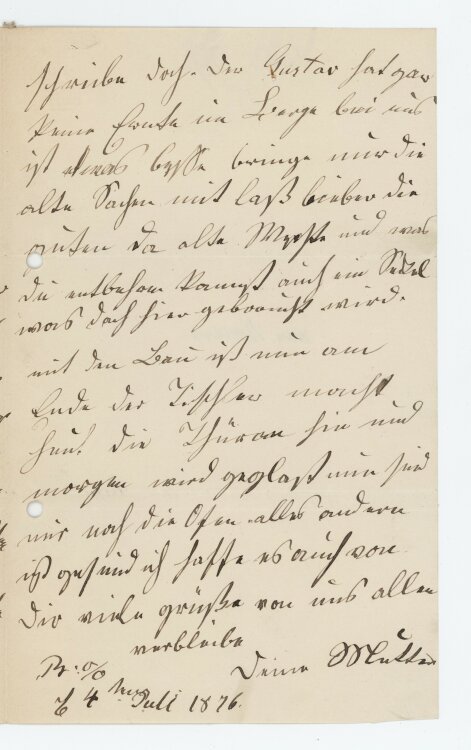 schreibe doch. Der Gustav hat gar
keine Ernte im Berge bei uns
ist etwas besse bringe nur die
alte Sachen mit laß lieber die
guten da alte Wesche und was
Du entbehren kannst auch ein
was doch hier gebraucht wird.
mit den Bau ist nun am
Ende der Tischler macht
heut die Thüren hin und
morgen wird geglast nun sind
nur noch die Ofen alles andere
ist gesund ich hoffe es auch von
Dir viele grüße von uns allen
verbleibe
Deine Mutter
4 Juli 1876.